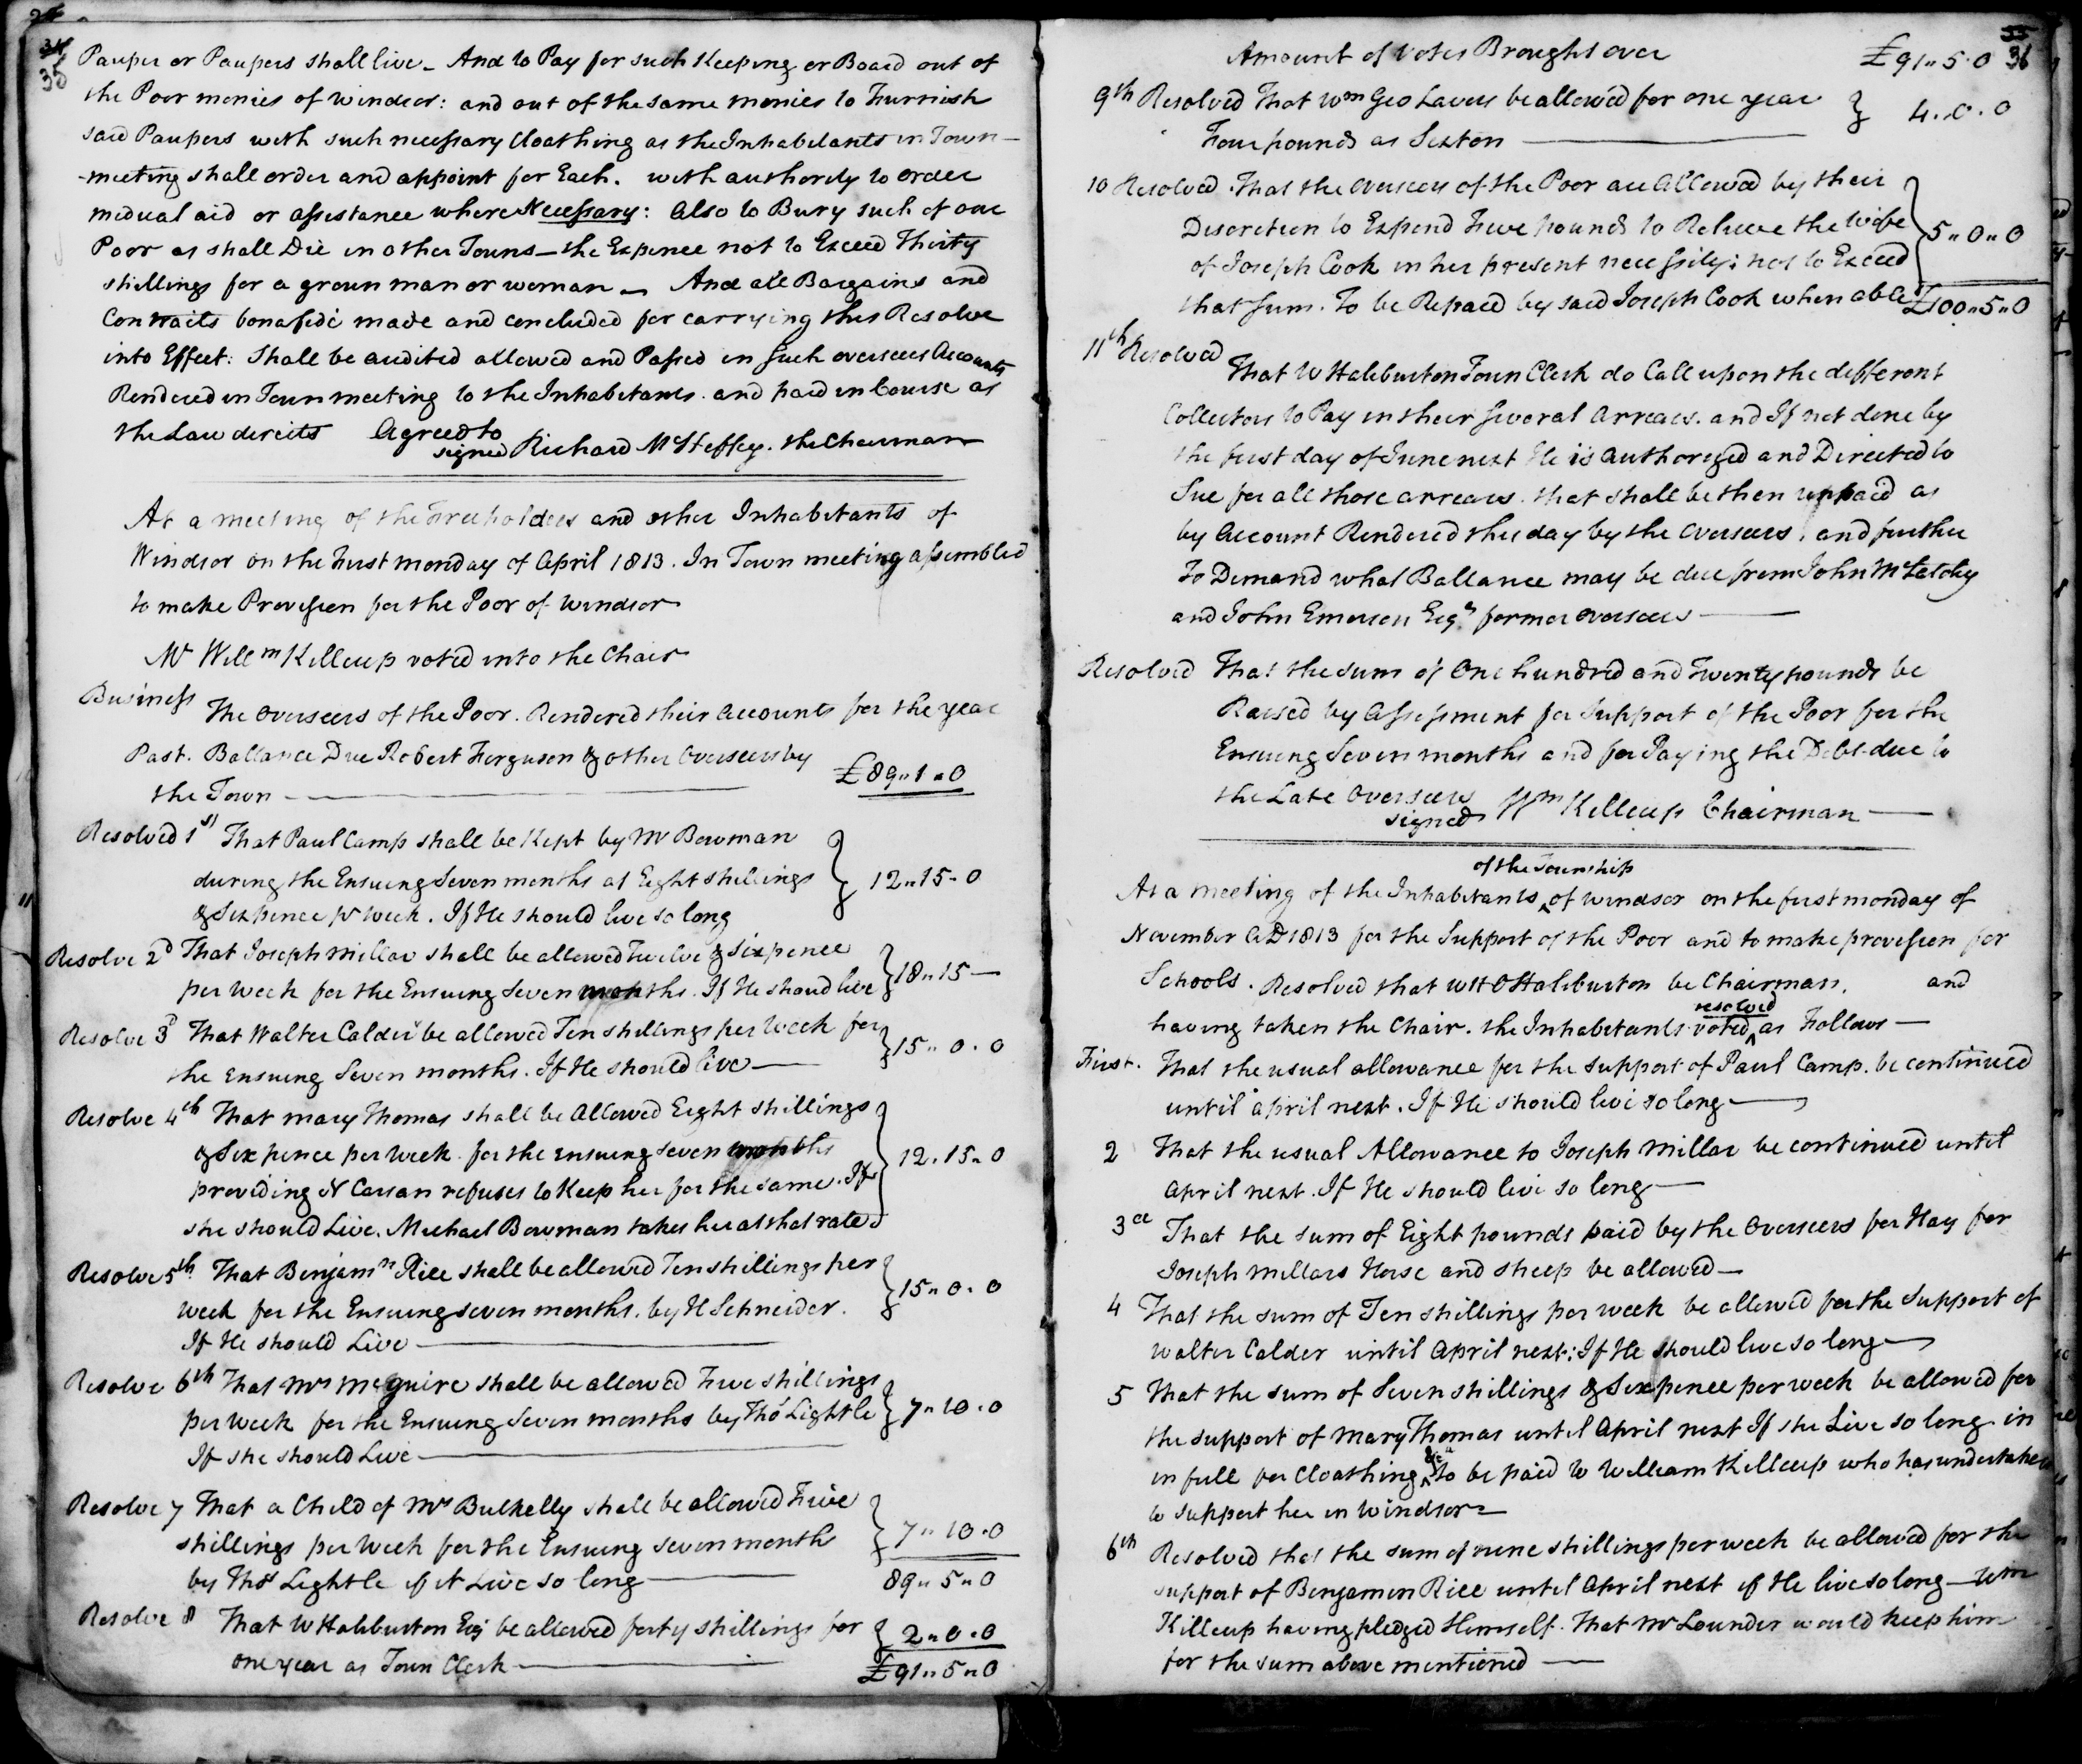 34
35
Pauper or Paupers shall live - And to Pay for such Keeping or Board out of
the Poor monies of Windsor: and out of the same monies to Furnish
said Paupers with such necessary Cloathing as the Inhabitants in Town-
-meeting shall order and appoint for Each. with authority to order
medical aid or assistance where Necessary: Also to Bury such of our
Poor as shall Die in other Towns - the Expence not to Exceed Thirty
shillings for a grown man or woman - And all Bargains and
Contracts bonafide made and concluded for carrying this Resolve
into Effect: Shall be audited allowed and Passed in such overseers Accounts
Rendered in Town meeting to the Inhabitants. and paid in Course as
the Law directs Agreed to
signed Richard McHeffey. the Chairman
At a meeting of the Freeholders and other Inhabitants of
Windsor on the First monday of April 1813. In Town meeting assembled
to make Provision for the Poor of Windsor
Mr Willm Killcup voted into the Chair
Business The Overseers of the Poor. Rendered their Accounts for the year
Past. Ballance Due Robert Ferguson & other Overseers by
the Town £89"1"0
Resolved 1st That Paul Camp shall be Kept by Mr Bowman
during the Ensuing Seven months at Eight shillings 12"15-0
& Sixpence pr week. If He should live so long
Resolve 2d That Joseph Millar shall be allowed Twelve & Sixpence
per Week for the Ensuing Seven months. If He should live 18"15-
Resolve 3d That Walter Calder be allowed Ten shillings per Week for
the Ensuing Seven months. If He should live 15"0.0
Resolve 4th That mary Thomas shall be Allowed Eight shillings
& Sixpence per Week for the ensuing seven months
providing N Carsan refuses to Keep her for the same. If 12.15"0
she should Live. Michael Bowman takes her at that rate
Resolve 5th That Benjamn Rice shall be allowed Ten shillings per
week for the Ensuing seven months. by H Schneider. 15"0.0
If He should Live
Resolve 6th That Mrs McGuire shall be allowed Five shillings
per week for the Ensuing Seven months by Thos Lightle 7"10.0
If she should Live
Resolve 7 That a Child of Mrs Bulkelly shall be allowed Five
shillings per Week for the Ensuing seven month 7"10.0
by Thos Lightle if it Live so long 89"5"0
Resolve 8 That W Haliburton Esq be allowed forty shillings for 2"0.0
one year as Town Clerk £91"5"0
35
36
Amount of votes Brought over £91"5.0
9th Resolved That Wm Geo Lavers be allowed for one year 4.0.0
Four pounds as Sexton
10 Resolved That the Overseers of the Poor are Allowed by their
Discretion to Expend Five pounds to Relieve the Wife 5"0"0
of Joseph Cook in her present necessity; not to Exceed
that sum. To be Repaid by said Joseph Cook when able £100"5"0
11th Resolved
That W Haliburton Town Clerk do Call upon the different
Collectors to Pay in their several Arrears. and If not done by
the first day of June next He is Authorized and Directed to
Sue for all those arrears. that shall be then unpaid as
by Account Rendered this day by the Overseers, and further
To Demand what Ballance may be due from John McLatchy
and John Emerson Esqr former overseers
Resolved That the sum of One hundred and Twenty pounds be
Raised by Assessment for Support of the Poor for the
Ensuing Seven months and for Paying the Debt due to
the Late Overseers
signed Wm Killcup Chairman
of the Township
At a meeting of the Inhabitants ^ of Windsor on the first monday of
November AD 1813 for the Support of the Poor and to make provision for
Schools. Resolved that W H O Haliburton be Chairman, and
resolved
having taken the Chair. the Inhabitants voted ^ as Follows
First. That the usual allowance for the support of Paul Camp. be continued
until april next. If He should live so long
2 That the usual Allowance to Joseph Millar be continued until
April next. If He should live so long
3d That the sum of Eight pounds paid by the Overseers for Hay for
Joseph Millars Horse and sheep be allowed
4 That the sum of Ten shillings per week be allowed for the Support of
Walter Calder until April next; If He should live so long
5 That the sum of Seven shillings & Sixpence per week be allowed for
the support of Mary Thomas until April next If she Live so long in
&c
in full for Cloathing ^ to be paid to William Killcup who has undertaken
to support her in Windsor
6th Resolved that the sum of nine shillings per week be allowed for the
support of Benjamin Rice until April next if He live so long - Wm
Killcup having pledged Himself. That Mr Lounder would keep him
for the sum above mentioned